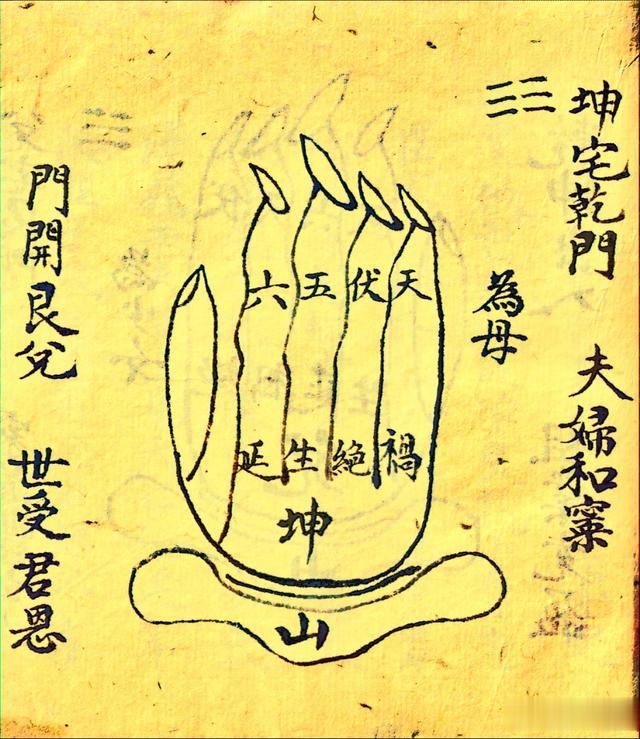 坤宅乾門 夫婦和
為母
六五伏天
延生絶禍
坤
山
門開艮兌 世受君恩